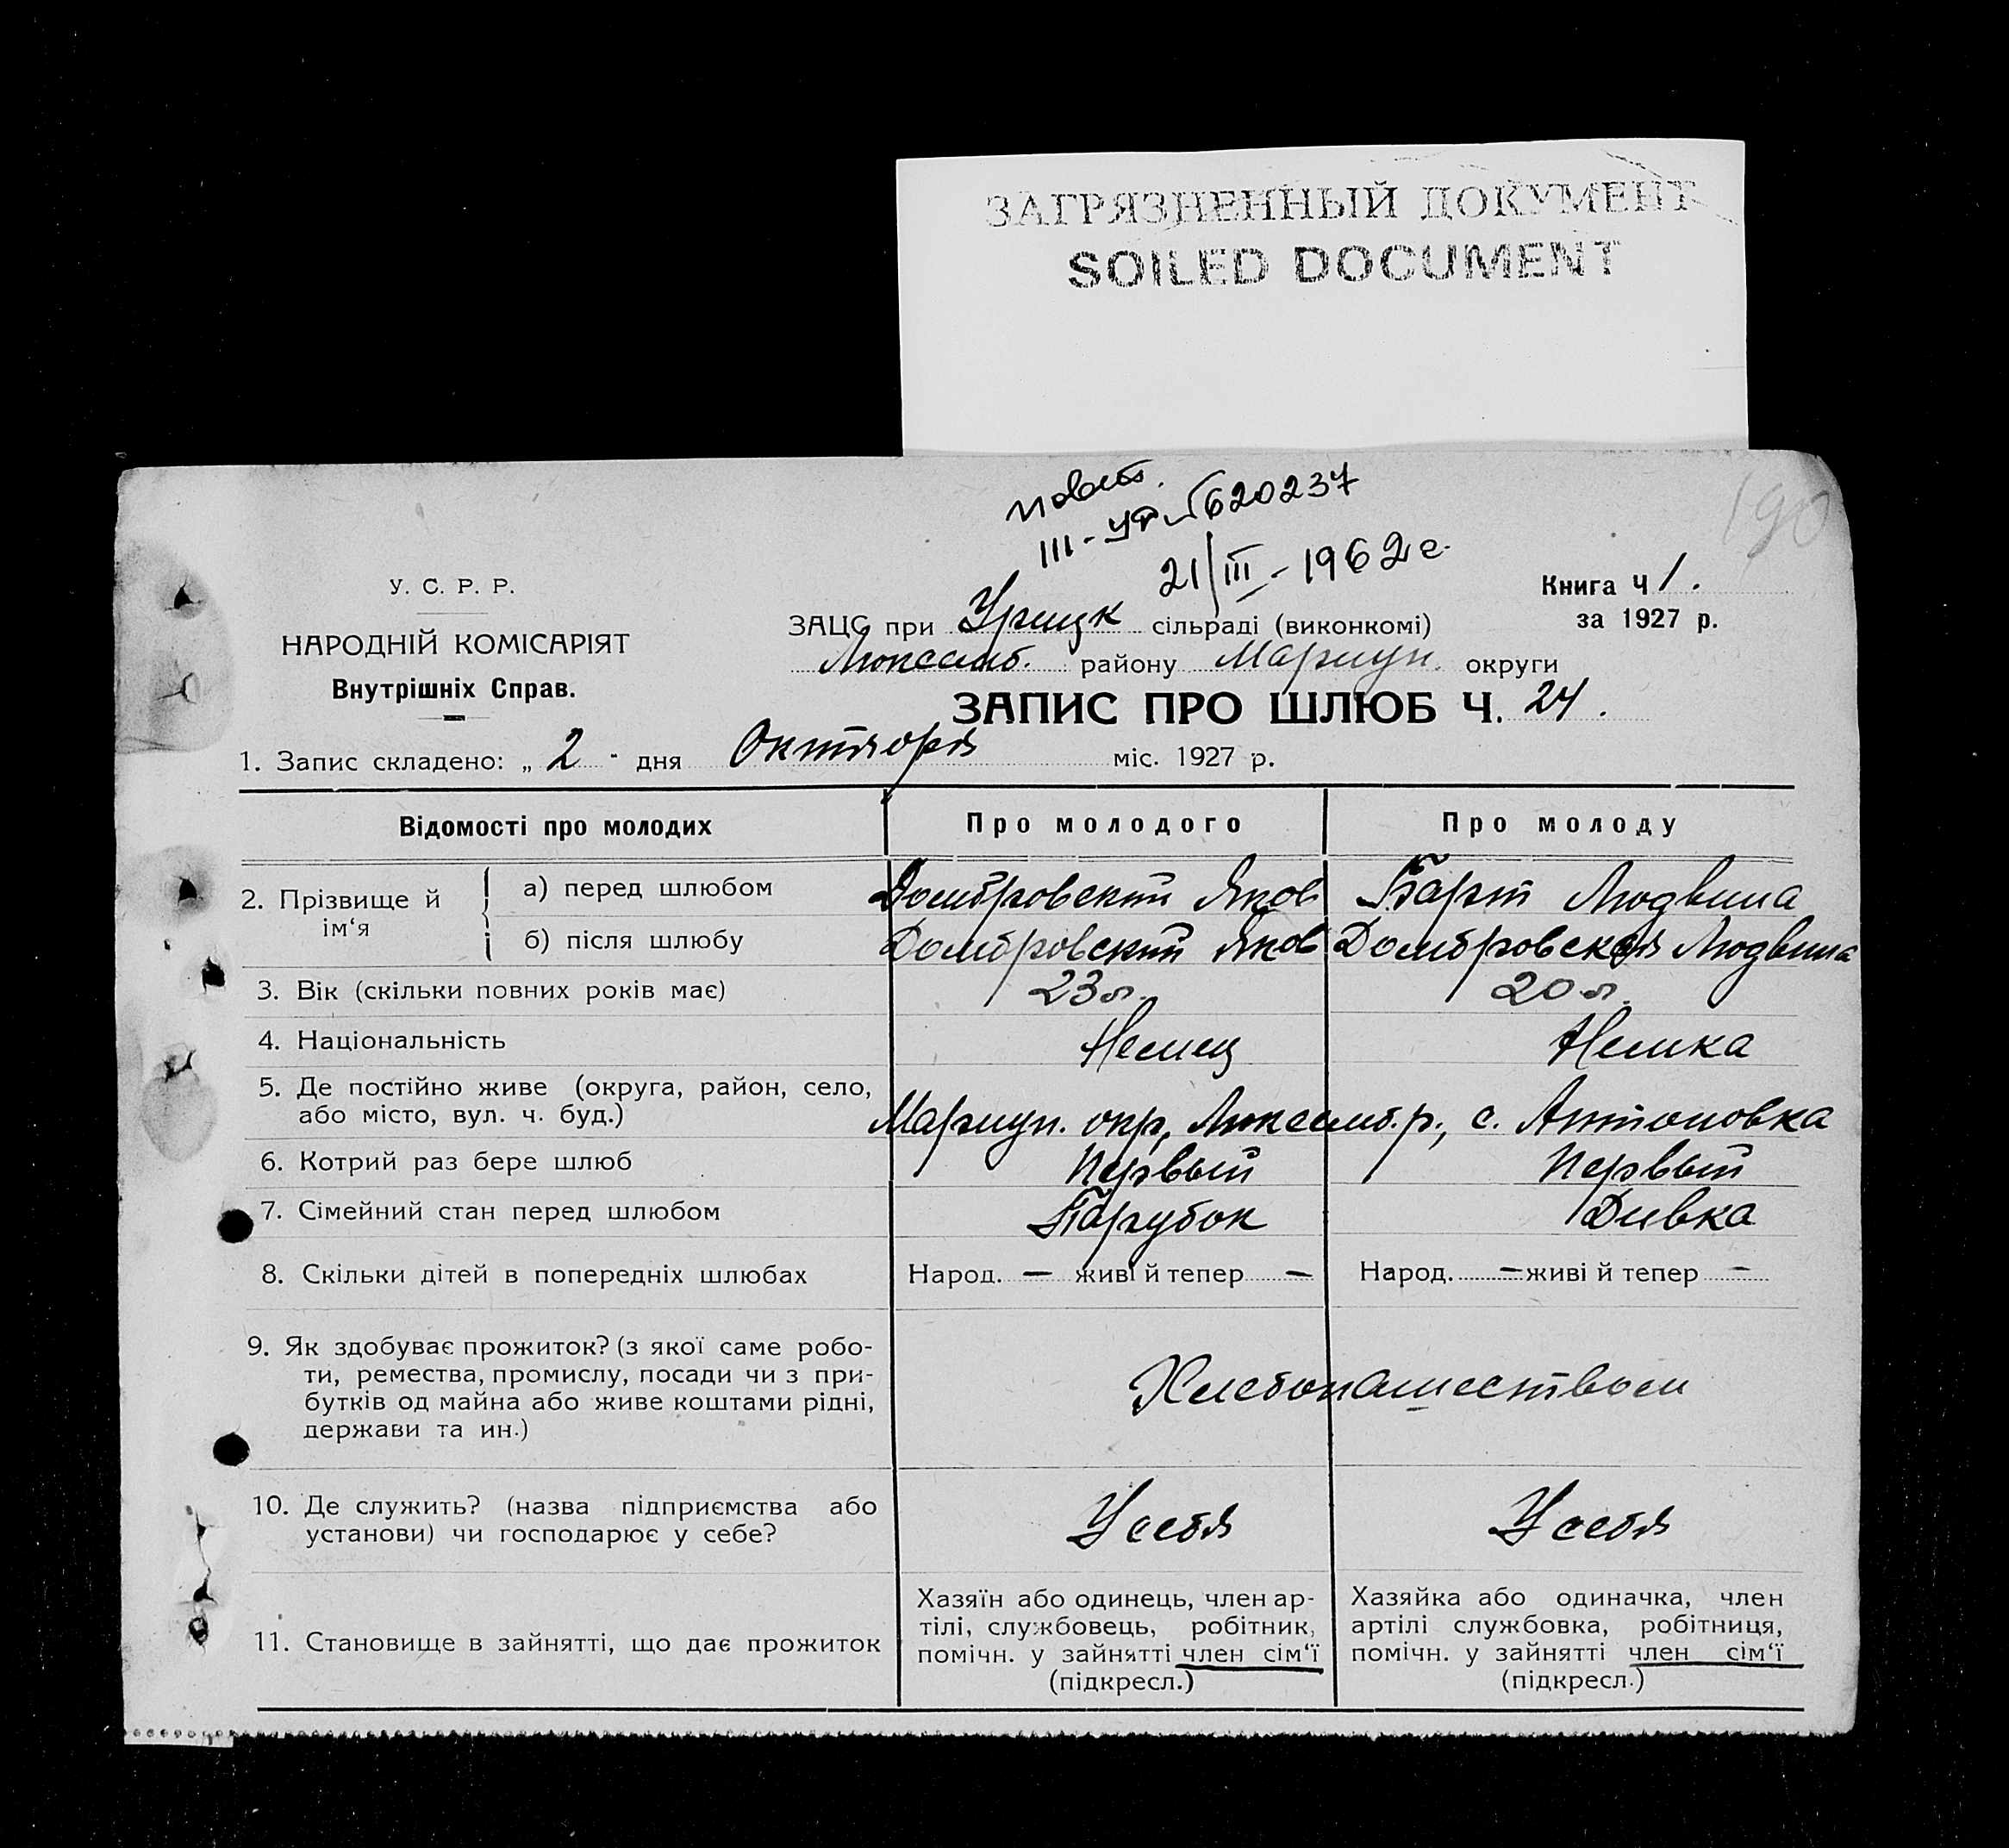 ЗАГРЯЗНЕННЫЙ ДОКУМЕНТ
SOILED DOCUMENT
190
повт.
III-УР № 620237
21/III-1962 г.
У. С. Р. Р.
НАРОДНІЙ КОМІСАРІЯТ
Внутрішніх Справ.
Книга Ч 1.
за 1927 р.
ЗАЦС при Урицк сільраді (виконкомі)
Люксемб. району Мариуп. округи
ЗАПИС ПРО ШЛЮБ Ч. 24.
1. Запис складено: „ 2 " дня Октября міс. 1927 р.
Відомості про молодих Про молодого Про молоду
2. Прізвище й ім‘я
а) перед шлюбом Домбровский Яков Барт Людвина
б) після шлюбу Домбровский Яков Домбровская Людвина
3. Вік (скільки повних років має) 23 л. 20 л.
4. Національність Немец Немка
5. Де постійно живе (округа, район, село,
або місто, вул. ч. буд.) Мариуп. окр, Люксемб. р., с. Антоновка
6. Котрий раз бере шлюб Первый Первый
7. Сімейний стан перед шлюбом Парубок Дивка
8. Скільки дітей в попередніх шлюбах Народ. — живі й тепер — Народ. — живі й тепер —
9. Як здобуває прожиток? (з якої саме робо-
ти, ремества, промислу, посади чи з при-
бутків од майна або живе коштами рідні,
держави та ин.)
Хлебопашеством
10. Де служить? (назва підприємства або
установи) чи господарює у себе?
У себя У себя
11. Становище в зайнятті, що дає прожиток
Хазяїн або одинець, член ар-
тілі, службовець, робітник,
помічн. у зайнятті член сім‘ї
(підкресл.)
Хазяйка або одиначка, член
артілі службовка, робітниця,
помічн. у зайнятті член сім‘ї
(підкресл.)